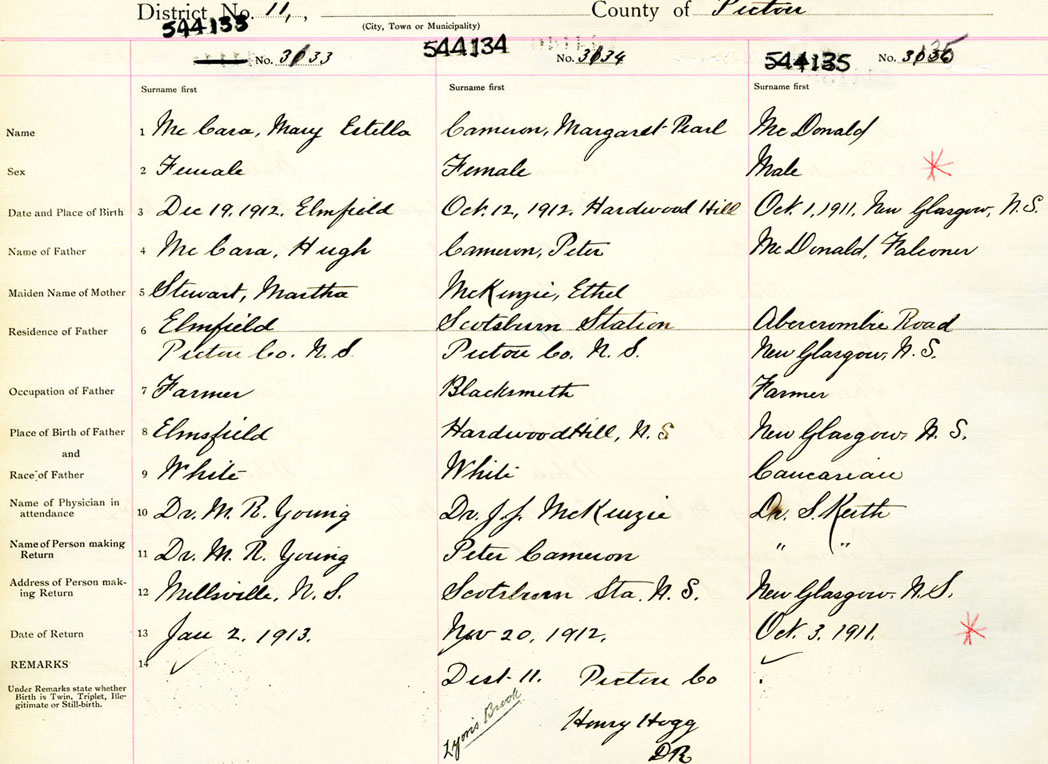 District No. 11, County of Pictou
(City, Town or Municipality)
544133 544134 544135
No. 3033 No. 3034 No. 3035
Surname first Surname first Surname first
Name 1 McCara, Mary Estella Cameron, Margaret Pearl McDonald
Sex 2 Female Female Male
Date and Place of Birth 3 Dec 19, 1912. Elmfield Oct. 12, 1912. Hardwood Hill Oct. 1, 1911. New Glasgow, N.S.
Name of Father 4 McCara, Hugh Cameron, Peter McDonald, Falconer
Maiden Name of Mother 5 Stewart, Martha McKenzie, Ethel
Residence of Father 6 Elmfield Scotsburn Station Abercrombie Road
Pictou Co. N.S. Pictou Co, N.S. New Glasgow, N.S.
Occupation of Father 7 Farmer Blacksmith Farmer
Place of Birth of Father 8 Elmsfield Hardwood Hill, N.S New Glasgow, N.S.
and
Race of Father 9 White White Caucasian
Name of Physician in attendance 10 Dr. M. R. Young Dr. J. J. McKenzie Dr. S. Keith
Name of Person making Return 11 Dr. M. R. Young Peter Cameron " "
Address of Person making Return 12 Millsville, N.S. Scotsburn Sta. N.S. New Glasgow, N.S.
Date of Return 13 Jan 2, 1913. Nov 20, 1912, Oct. 3, 1911.
REMARKS 14
Dist 11. Pictou Co
Under Remarks state whether
Birth is Twin, Triplet, Ille-
gitimate or Still-birth.
Lyons Brook
Henry Hogg
DR